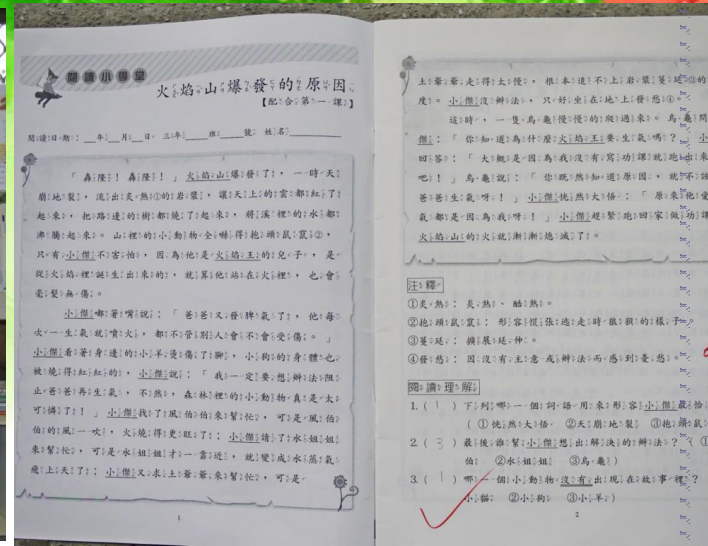 閱讀小學堂
火焰山爆發的原因
【配合第一課】
閱讀日期：__年__月__日 三年__班__號 姓名
「轟隆！轟隆！」火焰山爆發了，一時天
崩地裂，流出炎熱①的岩漿，讓天上的雲都紅了
起來，把路邊的樹都燒了起來，將溪裡的水都
沸騰起來。山裡的小動物全嚇得抱頭鼠竄②，
只有小傑不害怕，因為他是火焰王的兒子，是
從火焰裡誕生出來的，就算他站在火裡，也會
毫髮無傷。
小傑嘟著嘴說：「爸爸又發脾氣了，他每
次一生氣就噴火，都不管別人會不會受傷。」
小傑看著身邊的小羊燙傷了腳，小狗的身體也
被燒得紅紅的，小傑說：「我一定要想辦法阻
止爸爸再生氣，不然，森林裡的小動物真是太
可憐了！」小傑找了風伯伯來幫忙，可是風伯
伯的風一吹，火燒得更旺了；小傑請了水姐姐
來幫忙，可是水姐姐才一靠近，就變成水蒸氣
飛上天了；小傑又求土爺爺來幫忙，可是
1
土爺爺走得太慢，根本追不上岩漿蔓延③的
度。小傑沒辦法，只好坐在地上發愁④。
這時，一隻烏龜慢慢的爬過來。烏龜問
傑：「你知道為什麼火焰王要生氣嗎？」小
回答：「大概是因為我沒有寫功課就跑出來
吧！」烏龜說：「你既然知道原因，就不該
爸爸生氣呀！」小傑恍然大悟：「原來他愛
氣都是因為我呀！」小傑趕緊跑回家做功課
火焰山的火就漸漸熄滅了。
注釋
①炎熱：炎熱、酷熱。
②抱頭鼠竄：形容慌張逃走時狼狽的樣子。
③蔓延：擴展延伸。
④發愁：因沒有主意或辦法而感到憂愁。
閱讀理解
1.（1）下列哪一個詞語用來形容小傑最恰
（①恍然大悟 ②天崩地裂 ③抱頭鼠
2.（3）最後誰幫小傑想出解決的辦法？（①
伯 ②水姐姐 ③烏龜）
3.（1）哪一個小動物沒有出現在故事裡？
小貓 ②小狗 ③小羊）
2